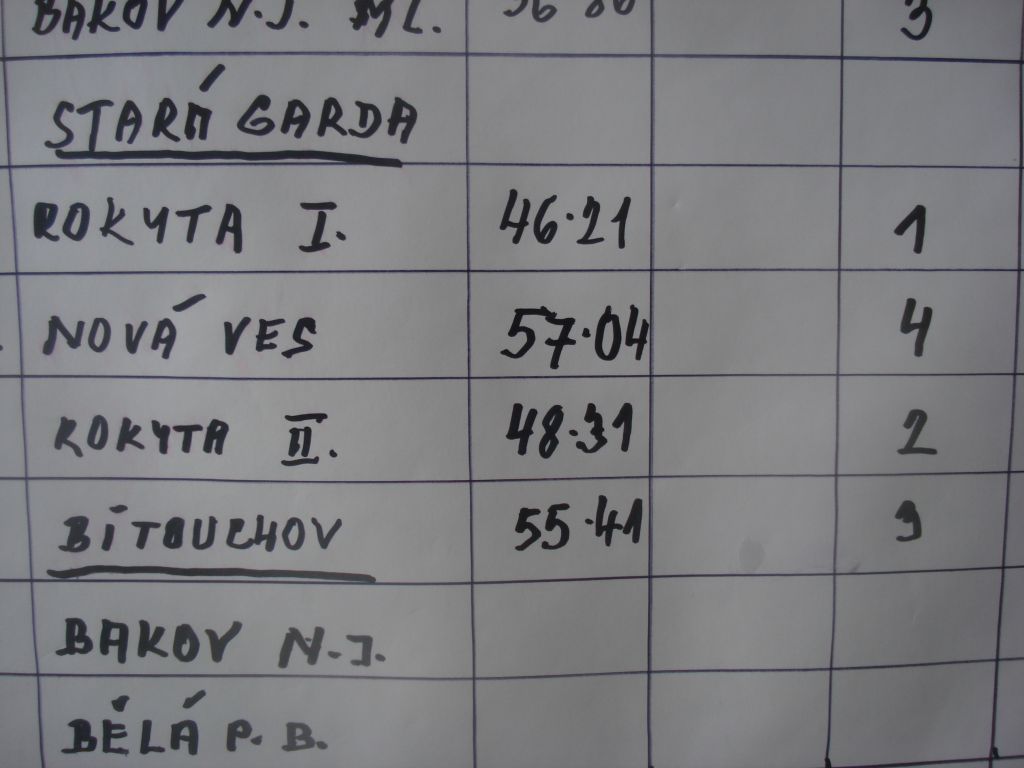 BAKOV N.J. ML. 3
STARÁ GARDA
ROKYTA I. 46·21 1
NOVÁ VES 57·04 4
ROKYTA II. 48·31 2
BÍTOUCHOV 55·41 3
BAKOV N.J.
BĚLÁ P.B.